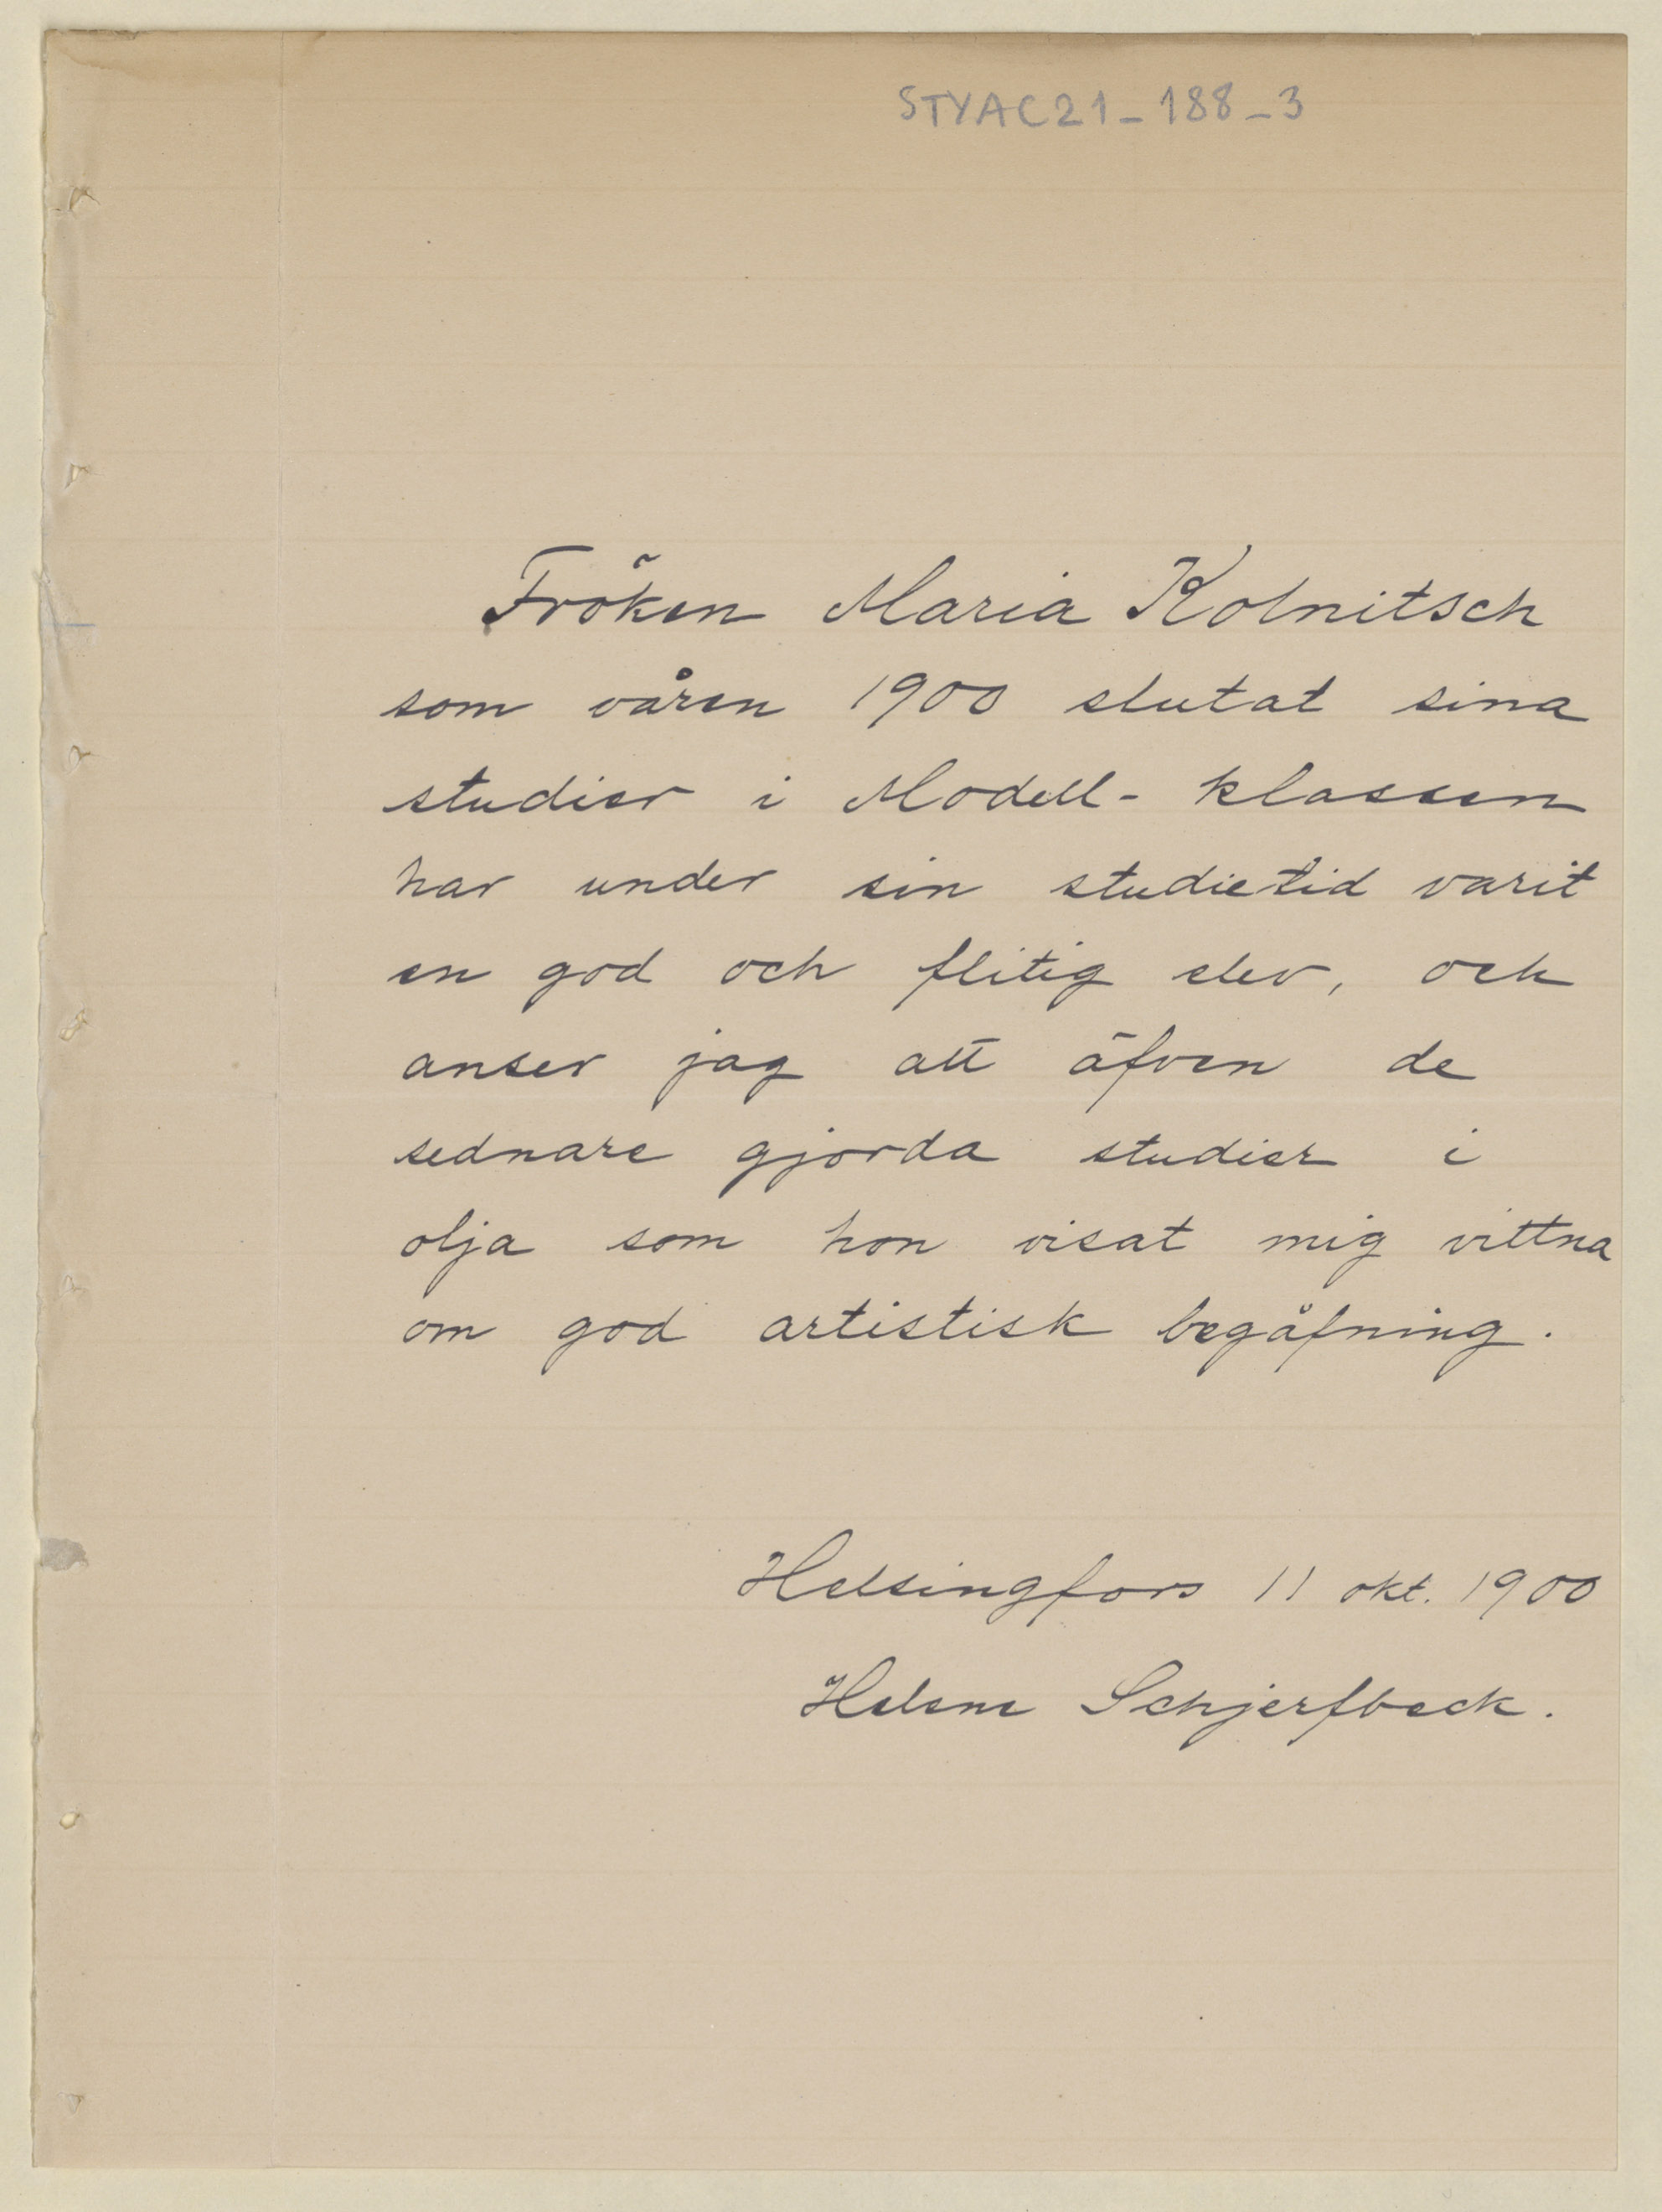 STYAC21-188-3
Fröken Maria Kolnitsch
som våren 1900 slutat sina
studier i Modell-klassen
har under sin studietid varit
en god och flitig elev, och
anser jag att äfven de
sednare gjorda studier i
olja som hon visat mig vittna
om god artistisk begåfning.
Helsingfors 11 okt. 1900
Helene Schjerfbeck.